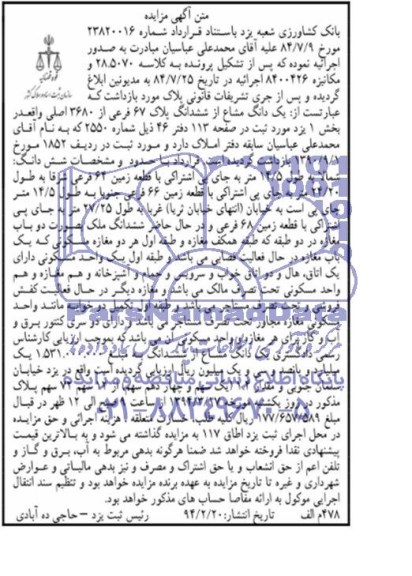 متن آگهی مزایده
بانک کشاورزی شعبه یزد باستناد قرارداد شماره ۲۳۸۲۰۰۱۶
مورخ ۸۴/۷/۹ علیه آقای محمدعلی عباسیان مبادرت به صدور
اجرائیه نموده که پس از تشکیل پرونده به کلاسه ۲۸.۵۰۷۰ و
مکانیزه ۸۴۰۰۴۲۶ اجرائیه در تاریخ ۸۴/۷/۲۵ به مدیونین ابلاغ
گردیده و پس از جری تشریفات قانونی پلاک مورد بازداشت که
عبارتست از: یک دانگ مشاع از ششدانگ پلاک ۶۷ فرعی از ۳۶۸۰ اصلی واقعدر
بخش ۱ یزد مورد ثبت در صفحه ۱۱۳ دفتر ۴۶ ذیل شماره ۲۵۵۰ که به نام آقای
محمدعلی عباسیان سابقه دفتر املاک دارد و مورد ثبت در ردیف ۱۸۵۲ مورخ
بازداشت گردیده حدود و مشخصات شش دانگ:
شمالا به طول ۱۴/۵ متر به جای پی اشتراکی با قطعه زمین ۶۴ فرعی شرقا به طول
جای پی اشتراکی با قطعه زمین ۶۶ فرعی جنوبا به طول ۱۴/۵ متر
جای پی است به خیابان (انتهای خیابان ثریا) غربا به طول ۲۷/۲۵ متر به جای پی
اشتراکی با قطعه زمین ۶۸ فرعی و در حال حاضر ششدانگ ملک بصورت دو باب
مغازه در دو طبقه که طبقه همکف مغازه و طبقه اول هر دو مغازه مسکونی که یک
باب مغازه در حال فعالیت قصابی می باشد و طبقه اول یک واحد مسکونی دارای
یک اتاق، هال و دو اتاق خواب و سرویس و حمام و آشپزخانه و هم مغازه و هم
واحد مسکونی تحت تصرف مالک می باشد و مغازه دیگر در حال فعالیت کفش
فروشی و تحت تصرف مستاجر می باشد و طبقه اول تکمیل دو خوابه مانند واحد
مسکونی مغازه مجاور تحت تصرف مستاجر می باشد و دارای دو سری کنتور برق و
آب و گاز برای هر مغازه و واحد مسکونی می باشد که بموجب ارزیابی کارشناس
رسمی دادگستری یک دانگ مشاع از ششدانگ به مبلغ
میلیارد و پانصد و سی و یک میلیون ریال ارزیابی گردیده است واقع در یزد خیابان
سهم پلاک
مذکور در روز یکشنبه مورخه از ساعت ۹ الی ۱۲ ظهر در قبال
مبلغ ۱۷۷/۶۵۷/۵۸۹ ریال کلیه طلب، خسارت متعلقه، هزینه اجرائی و حق مزایده
در محل اجرای ثبت یزد اطاق ۱۱۷ به مزایده گذاشته می شود و به بالاترین قیمت
پیشنهادی نقدا فروخته خواهد شد ضمنا هرگونه بدهی مربوط به آب، برق و گاز و
تلفن اعم از حق انشعاب و یا حق اشتراک و مصرف و نیز بدهی مالیاتی و عوارض
شهرداری و غیره تا تاریخ مزایده به عهده برنده مزایده خواهد بود و تنظیم سند انتقال
اجرایی موکول به ارائه مفاصا حساب های مذکور خواهد بود.
۴۷۸م الف تاریخ انتشار: ۹۴/۲/۲۰ رئیس ثبت یزد – حاجی ده آبادی
ParsNamadData
پایگاه اطلاع رسانی مناقصه و مزایده
۰۲۱-۸۸۳۴۹۶۷۰-۵